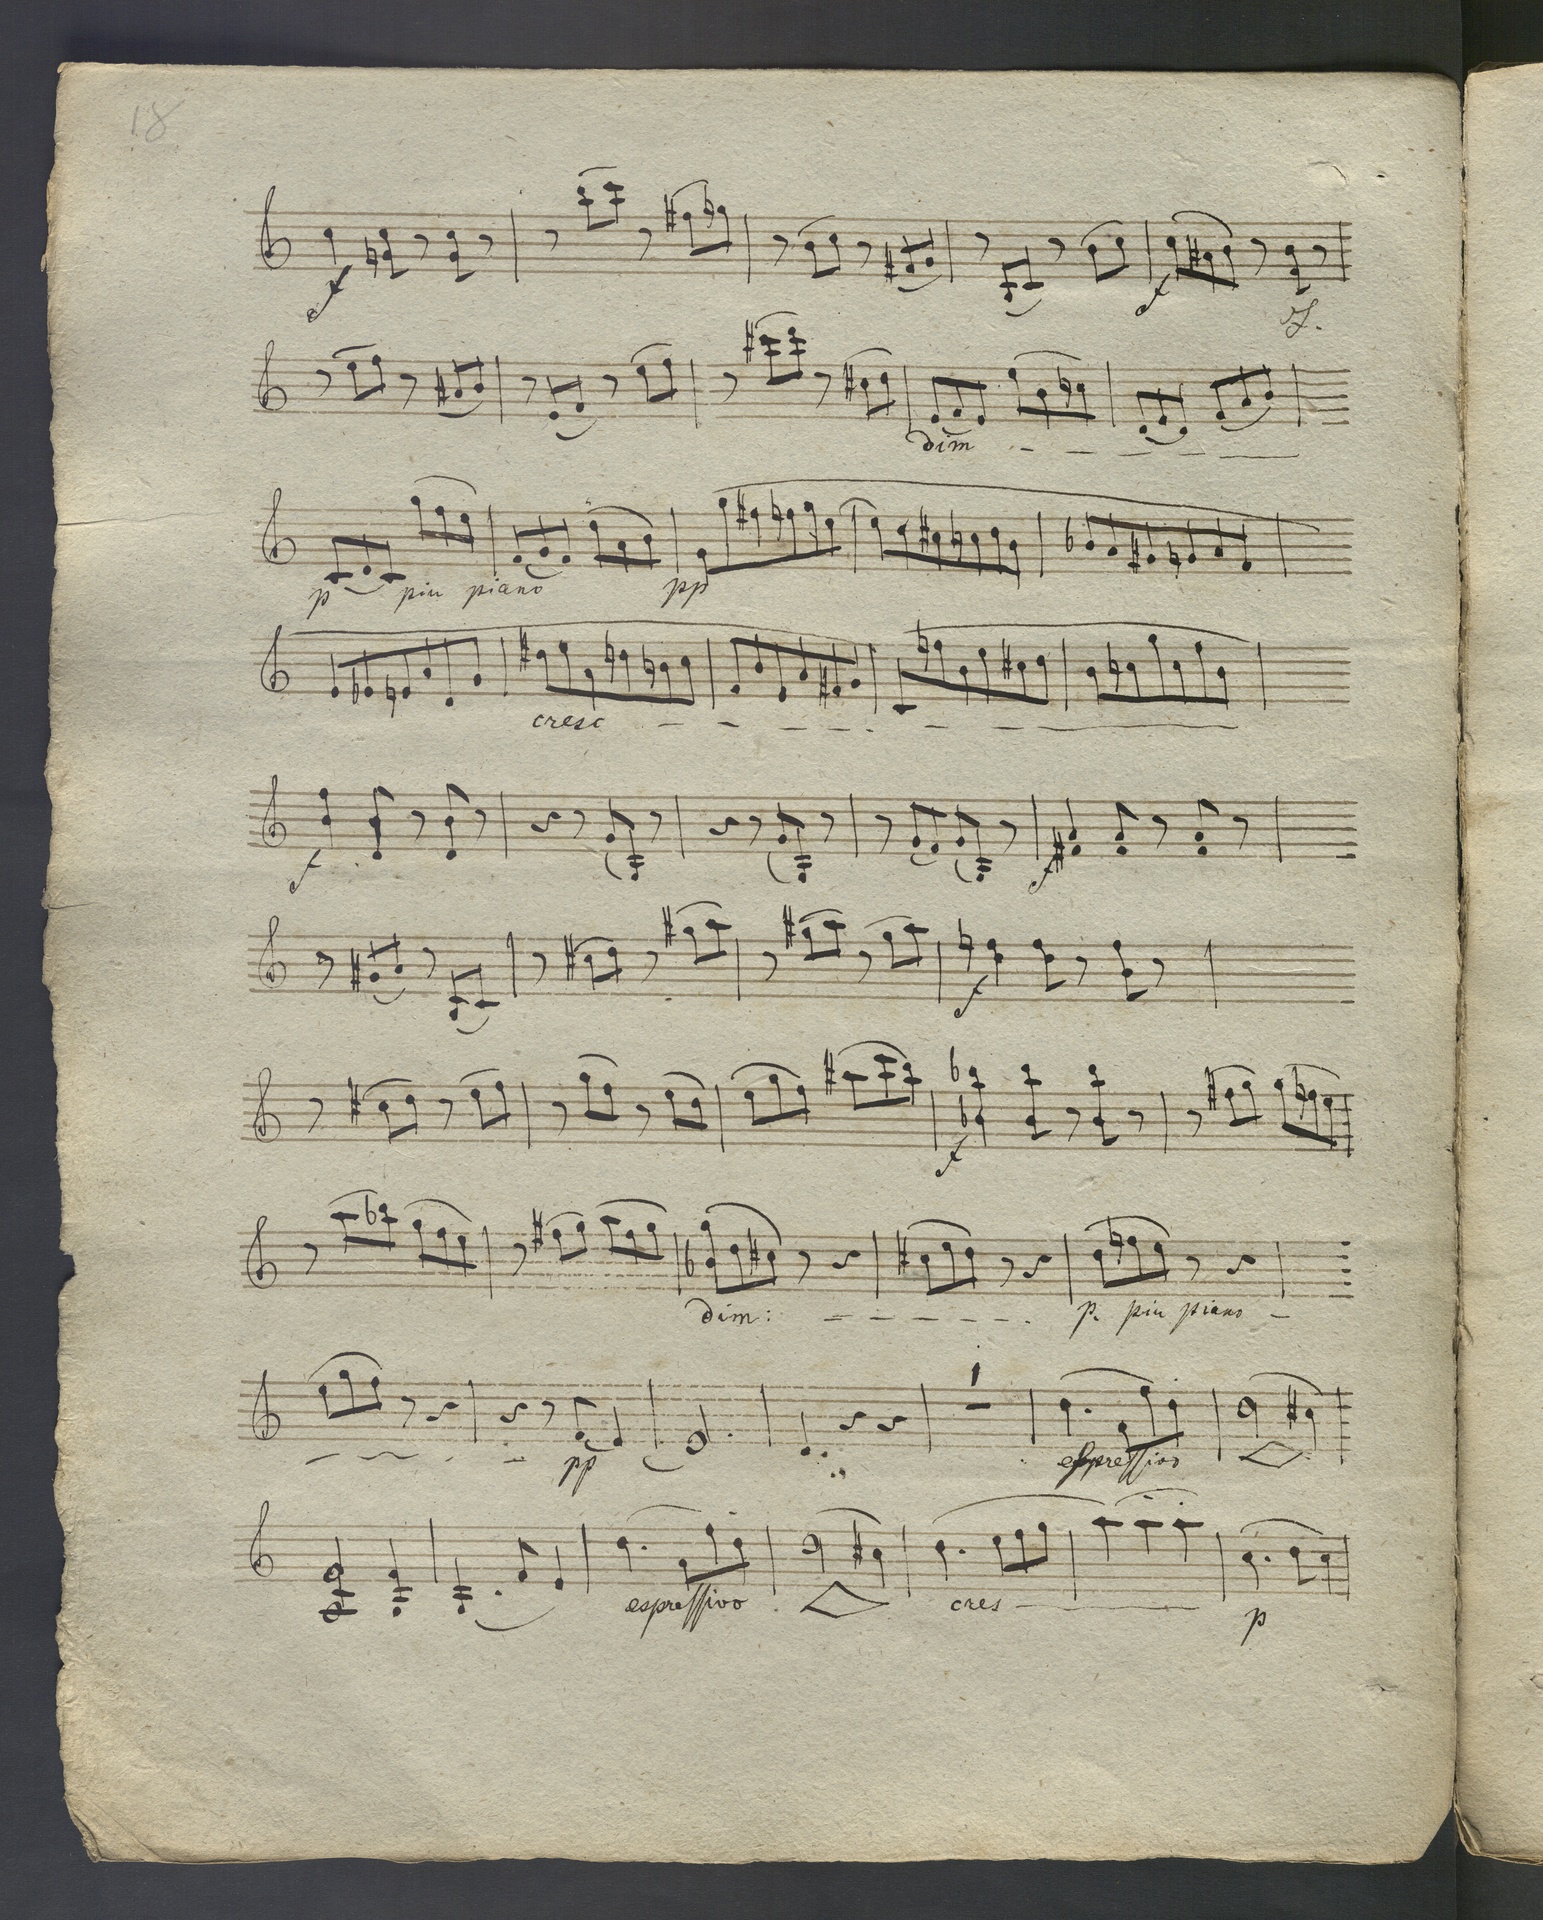 18
f f sf.
dim
p piu piano pp
cresc
f f
f
f
dim: p. piu piano
pp espressivo
espressivo cres p